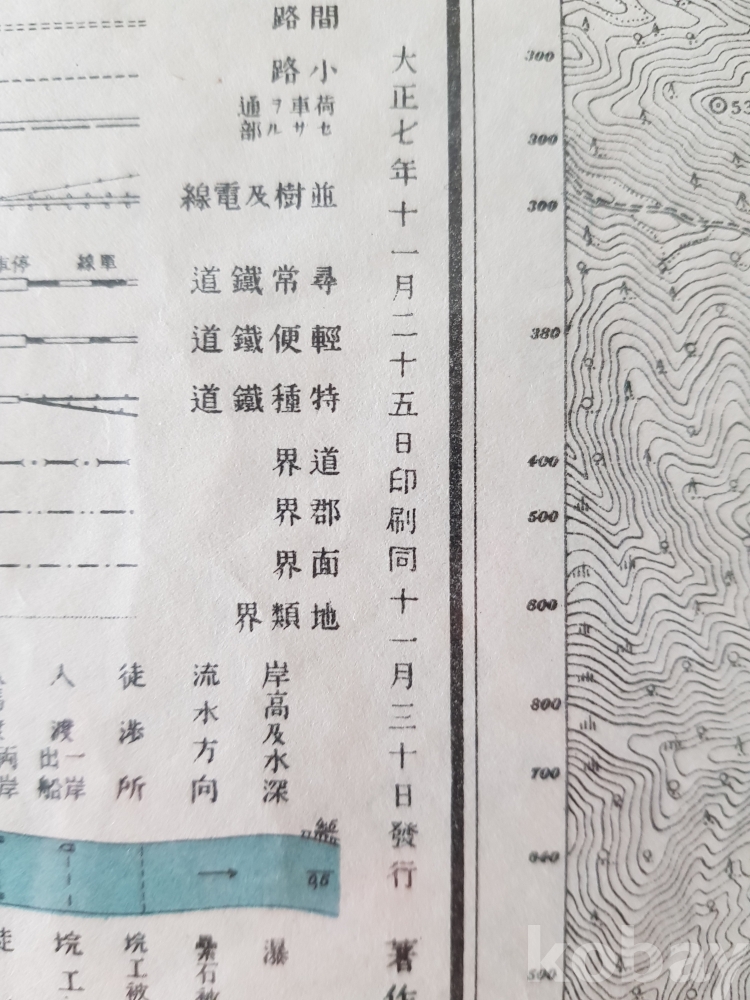 大正七年十一月二十五日印刷同十一月三十日發行
著作
間路
小路
荷車ヲ通
セサル部
並樹及電線
尋常鐵道
輕便鐵道
特種鐵道
道界
郡界
面界
地類界
單線
岸高及水深
流水方向
徒渉所
人渡
一岸
出船
0,6
瀑
坑工被
坑工
徒
300
300
300
380
400
500
600
800
700
640
500
53
kobay